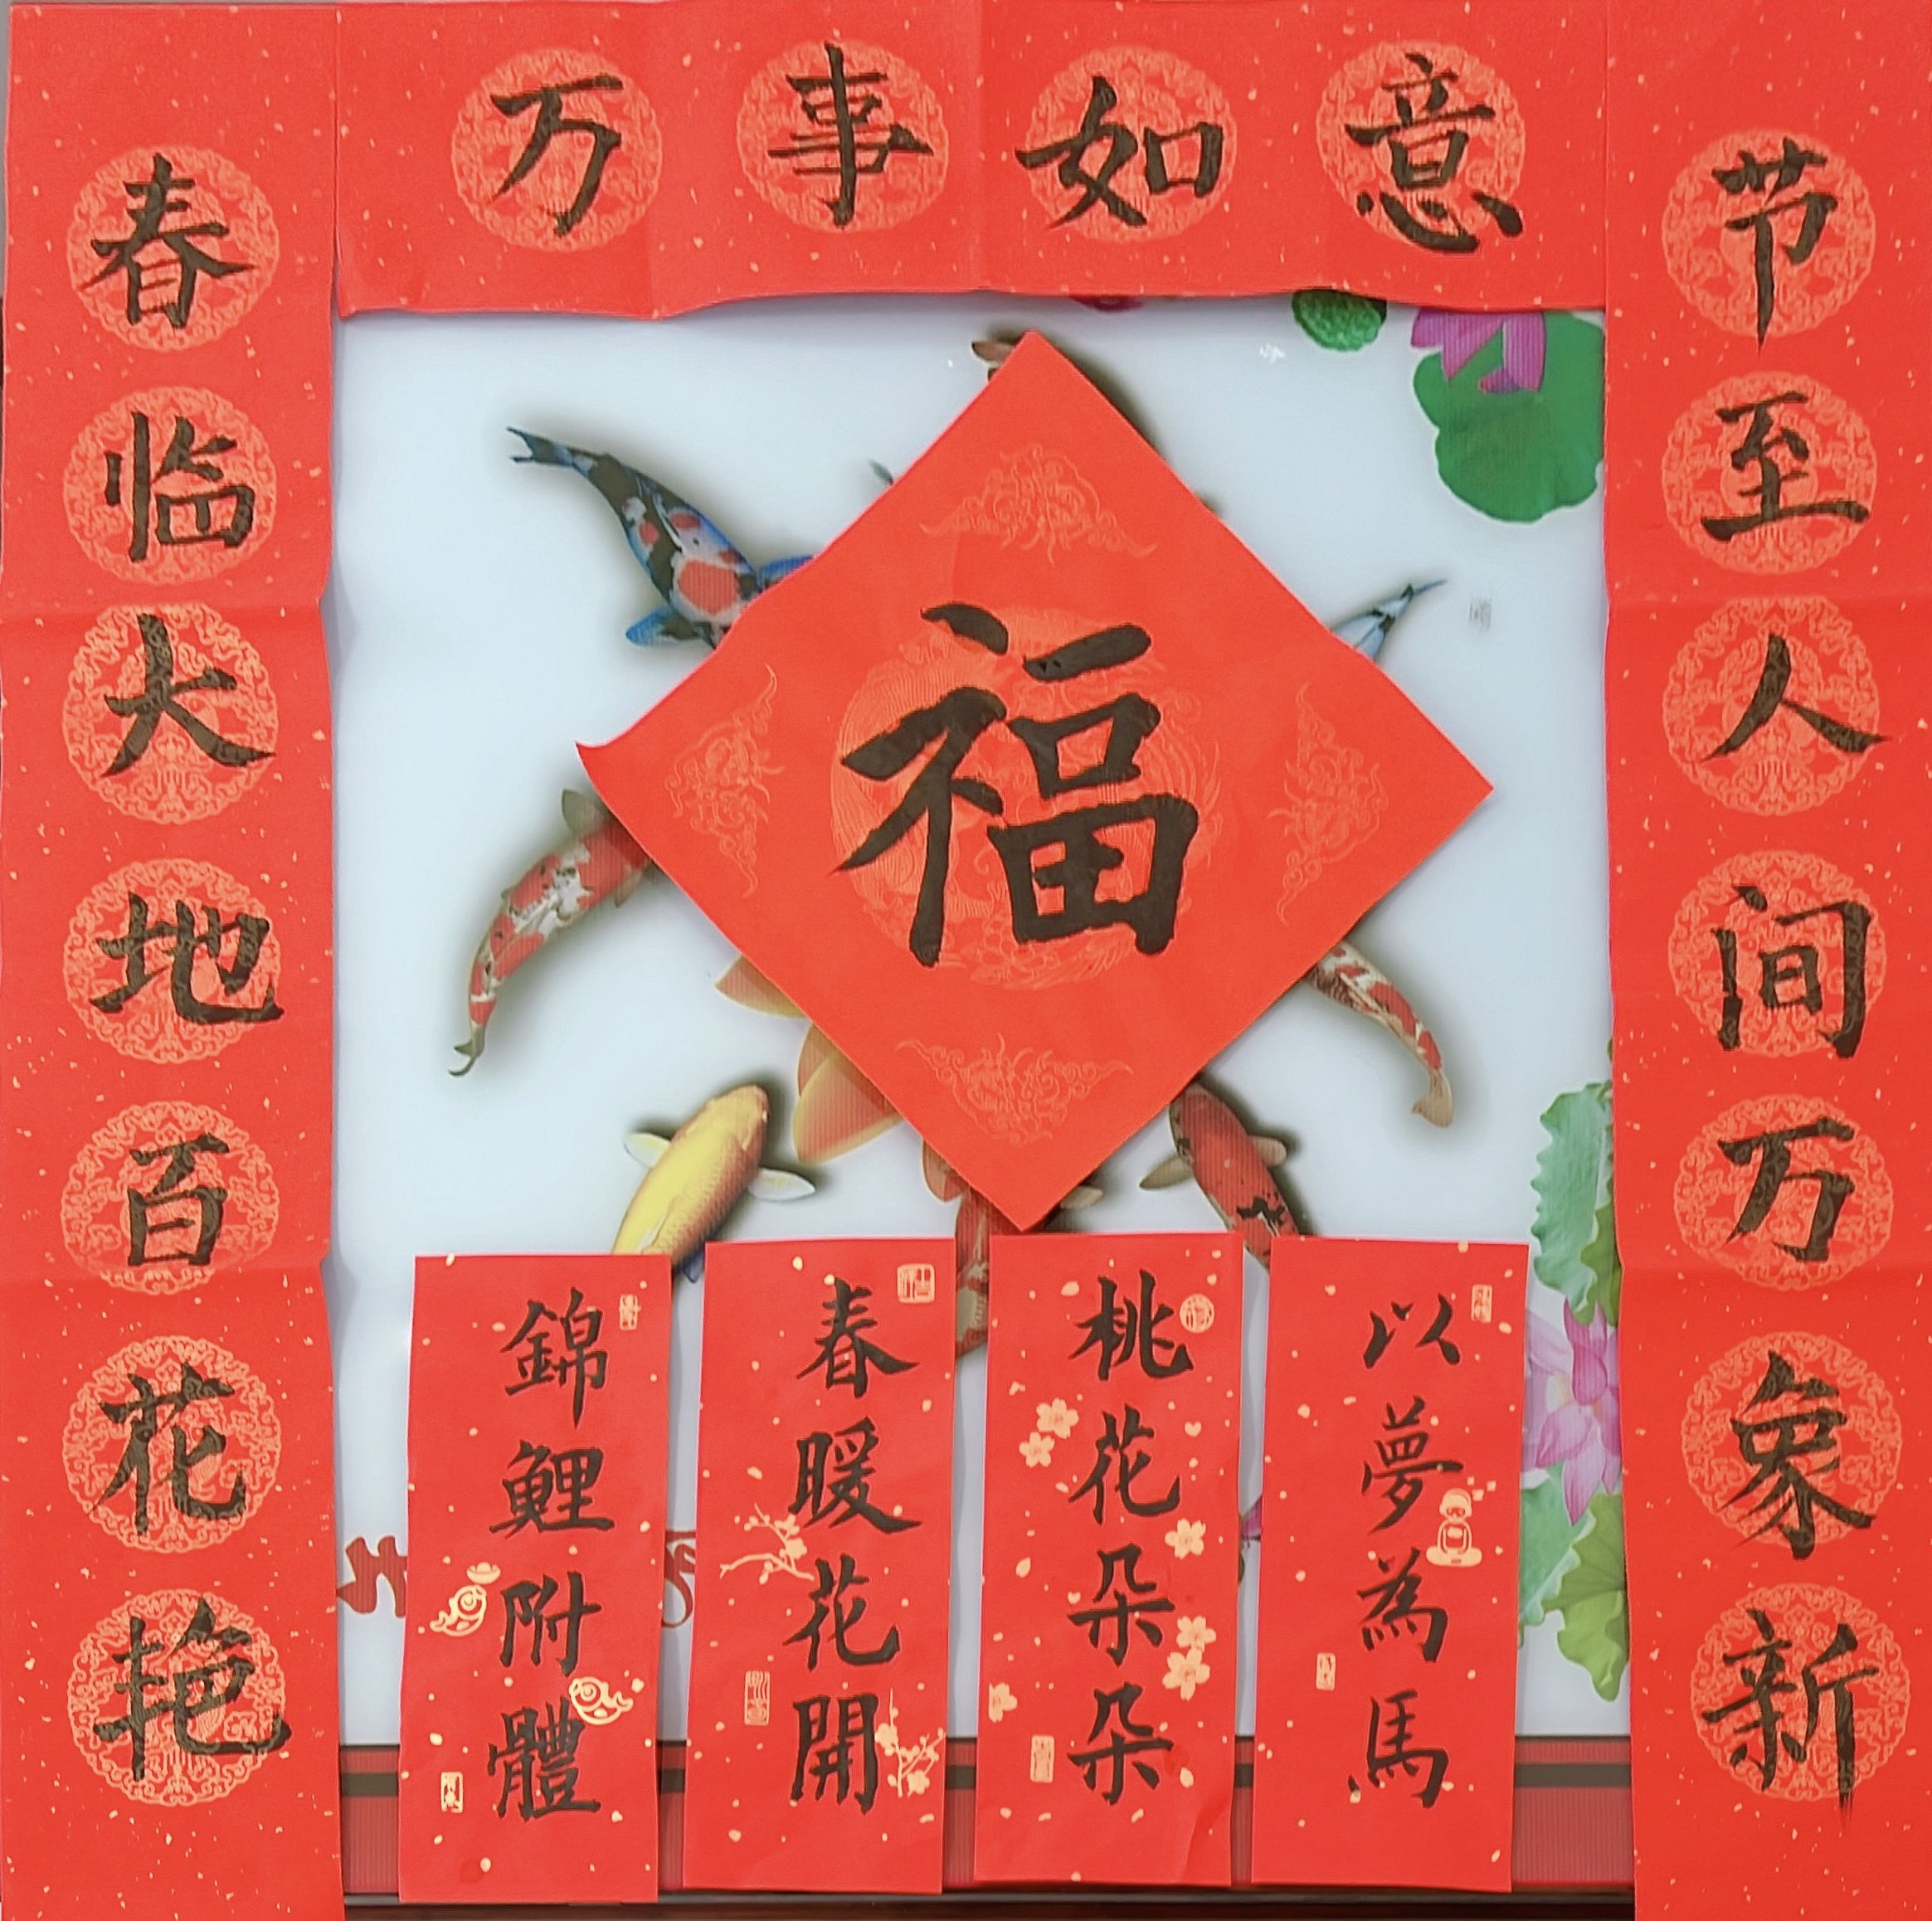 万事如意
春临大地百花艳
节至人间万象新
福
錦鯉附體
春暖花開
桃花朵朵
以夢為馬